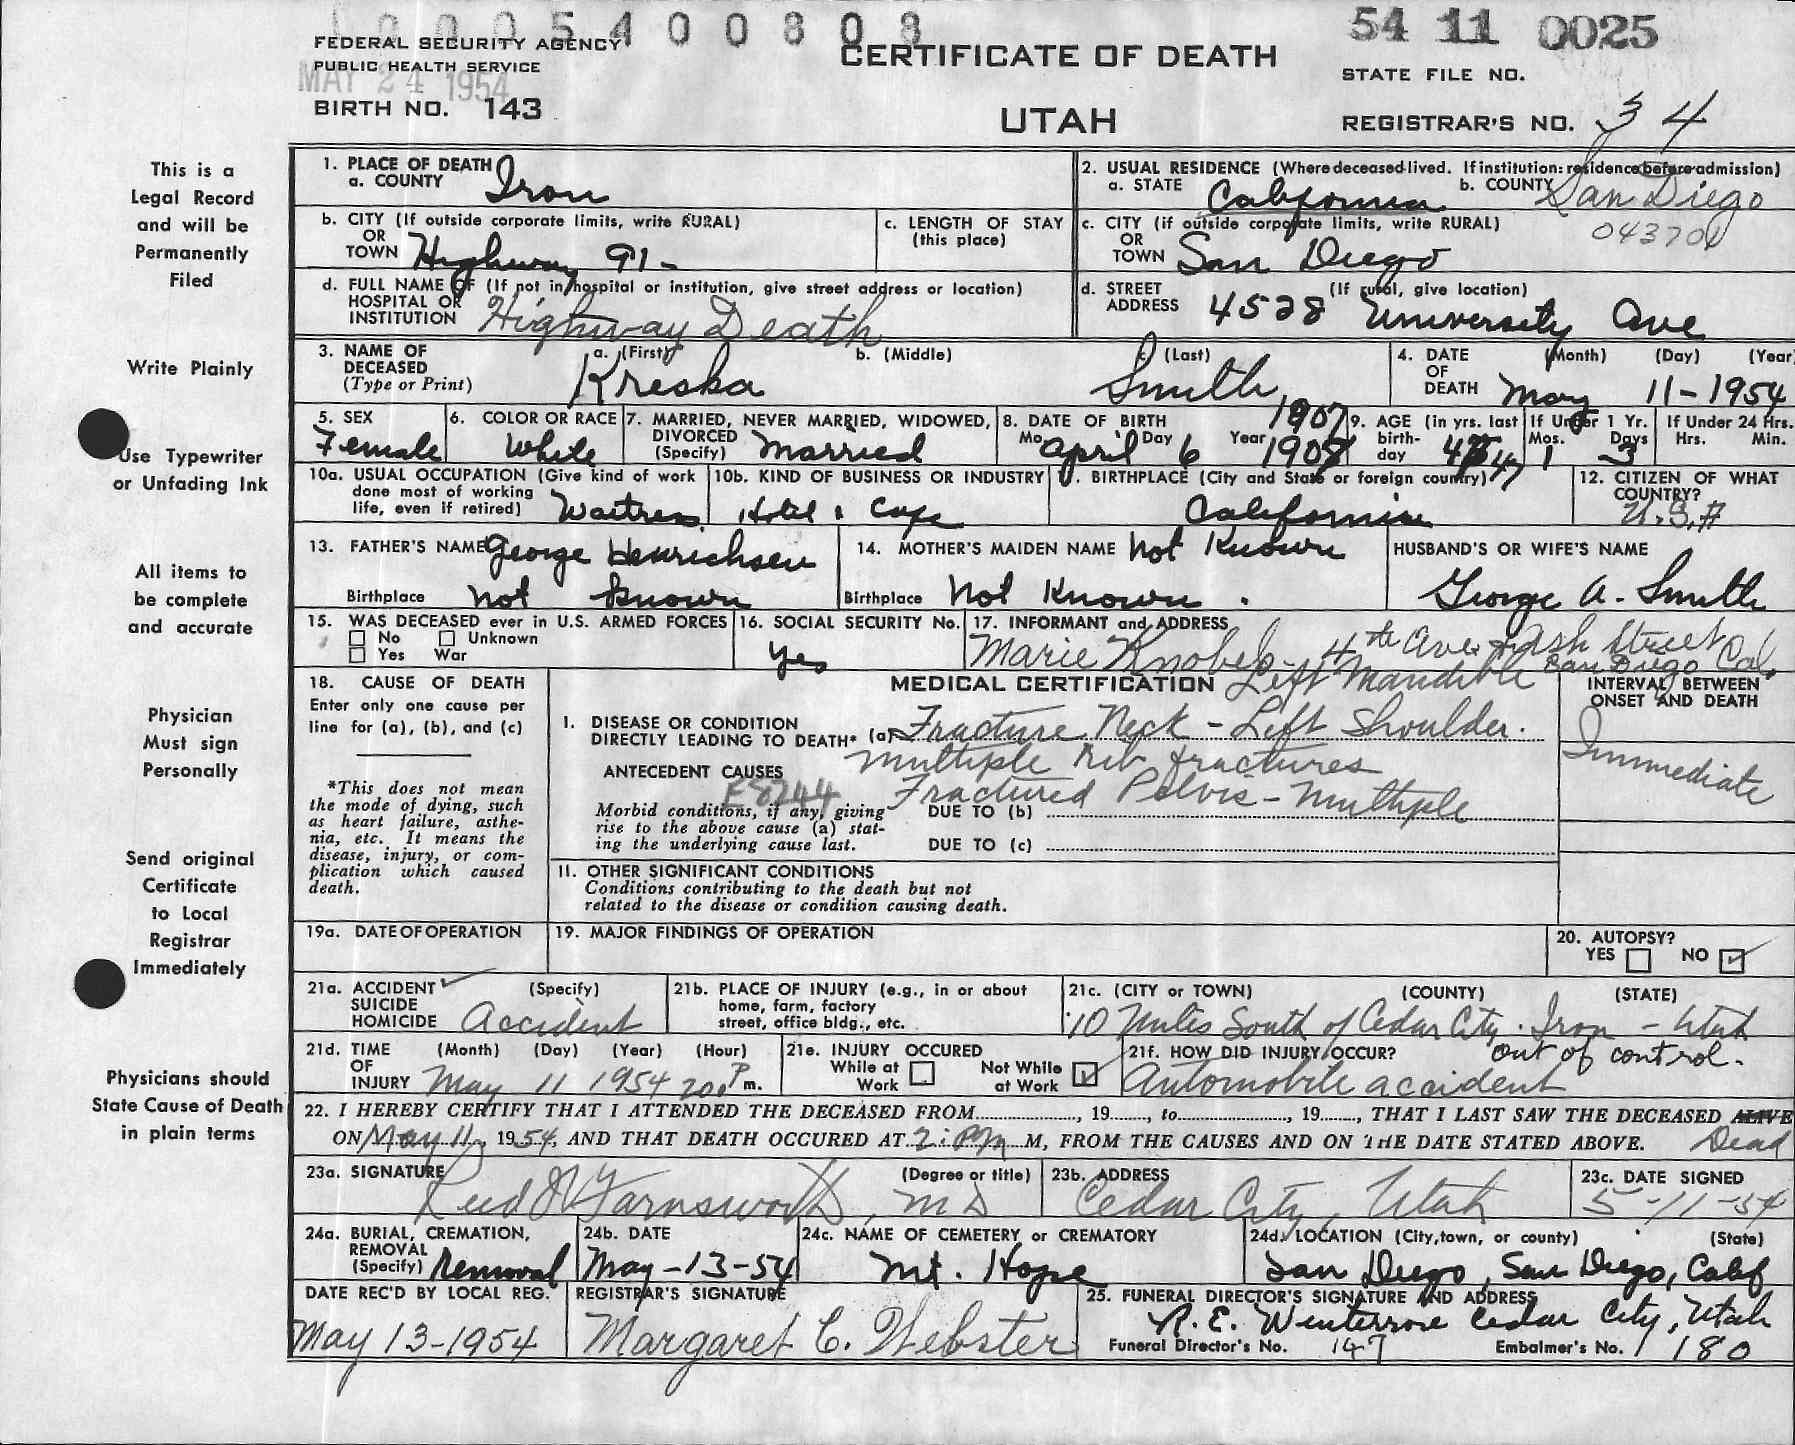 1 0 0 0 5 4 0 0 8 0 8
54 11 0025
FEDERAL SECURITY AGENCY
PUBLIC HEALTH SERVICE
MAY 24 1954
BIRTH NO. 143
CERTIFICATE OF DEATH
UTAH
STATE FILE NO.
REGISTRAR'S NO. 34
This is a
Legal Record
and will be
Permanently
Filed
Write Plainly
Use Typewriter
or Unfading Ink
All items to
be complete
and accurate
Physician
Must sign
Personally
Send original
Certificate
to Local
Registrar
Immediately
Physicians should
State Cause of Death
in plain terms
1. PLACE OF DEATH
a. COUNTY Iron
2. USUAL RESIDENCE (Where deceased lived. If institution: residence before admission)
a. STATE California b. COUNTY San Diego
b. CITY (If outside corporate limits, write RURAL)
OR
TOWN Highway 91-
c. LENGTH OF STAY
(this place)
c. CITY (if outside corporate limits, write RURAL)
OR
TOWN San Diego
04370
d. FULL NAME OF (If not in hospital or institution, give street address or location)
HOSPITAL OR
INSTITUTION Highway Death
d. STREET (If rural, give location)
ADDRESS 4528 University Ave
3. NAME OF
DECEASED
(Type or Print)
a. (First) b. (Middle) c. (Last)
Kreska Smith
4. DATE (Month) (Day) (Year)
OF
DEATH May 11-1954
5. SEX
Female
6. COLOR OR RACE
White
7. MARRIED, NEVER MARRIED, WIDOWED,
DIVORCED
(Specify) Married
8. DATE OF BIRTH 1907
Mo. April Day 6 Year 1908
9. AGE (in yrs. last
birth-
day 47
If Under 1 Yr.
Mos. Days
1 3
If Under 24 Hrs.
Hrs. Min.
10a. USUAL OCCUPATION (Give kind of work
done most of working
life, even if retired) Waitress
10b. KIND OF BUSINESS OR INDUSTRY
Hotel & Cafe
11. BIRTHPLACE (City and State or foreign country)
California
12. CITIZEN OF WHAT
COUNTRY?
U.S.A
13. FATHER'S NAME George Henrichsen
Birthplace not known
14. MOTHER'S MAIDEN NAME Not Known
Birthplace Not Known.
HUSBAND'S OR WIFE'S NAME
George A. Smith
15. WAS DECEASED ever in U.S. ARMED FORCES
No Unknown
Yes War
16. SOCIAL SECURITY No.
yes
17. INFORMANT and ADDRESS
Marie Knobel - 4th Ave & Ash Street
San Diego Cal.
18. CAUSE OF DEATH
Enter only one cause per
line for (a), (b), and (c)
*This does not mean
the mode of dying, such
as heart failure, asthe-
nia, etc. It means the
disease, injury, or com-
plication which caused
death.
MEDICAL CERTIFICATION Left Mandible
INTERVAL BETWEEN
ONSET AND DEATH
Immediate
1. DISEASE OR CONDITION
DIRECTLY LEADING TO DEATH* (a) Fracture Neck - Left Shoulder.
multiple rib fractures
ANTECEDENT CAUSES
E8244
Fractured Pelvis - multiple
Morbid conditions, if any, giving
rise to the above cause (a) stat-
ing the underlying cause last.
DUE TO (b)
DUE TO (c)
11. OTHER SIGNIFICANT CONDITIONS
Conditions contributing to the death but not
related to the disease or condition causing death.
19a. DATE OF OPERATION
19. MAJOR FINDINGS OF OPERATION
20. AUTOPSY?
YES NO
21a. ACCIDENT (Specify)
SUICIDE
HOMICIDE Accident
21b. PLACE OF INJURY (e.g., in or about
home, farm, factory
street, office bldg., etc.
21c. (CITY or TOWN) (COUNTY) (STATE)
10 Miles South of Cedar City. Iron - Utah
21d. TIME (Month) (Day) (Year) (Hour)
OF
INJURY May 11 1954 200 P m.
21e. INJURY OCCURED
While at Work
Not While at Work
21f. HOW DID INJURY OCCUR? out of control.
Automobile accident
22. I HEREBY CERTIFY THAT I ATTENDED THE DECEASED FROM , 19 to , 19 , THAT I LAST SAW THE DECEASED ALIVE
ON May 11, 1954, AND THAT DEATH OCCURED AT 2:PM M, FROM THE CAUSES AND ON THE DATE STATED ABOVE. Dead
23a. SIGNATURE (Degree or title)
Reed W Farnsworth, MD
23b. ADDRESS
Cedar City, Utah
23c. DATE SIGNED
5-11-54
24a. BURIAL, CREMATION,
REMOVAL
(Specify) Removal
24b. DATE
May-13-54
24c. NAME OF CEMETERY or CREMATORY
Mt. Hope
24d. LOCATION (City, town, or county) (State)
San Diego, San Diego, Calif
DATE REC'D BY LOCAL REG.
May 13-1954
REGISTRAR'S SIGNATURE
Margaret C. Webster
25. FUNERAL DIRECTOR'S SIGNATURE AND ADDRESS
R. E. Winterrose Cedar City, Utah
Funeral Director's No. 147 Embalmer's No. 180